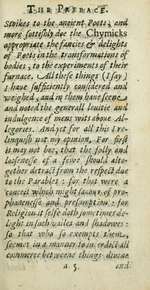 THE PREFACE.
Stoikes to the ancient Poets; and
more sottishly doe the Chymicks
appropriate the fancies & delights
of Poets in the transformations of
bodies, to the experiments of their
furnace. All these things (I say)
I have sufficiently considered and
weighed; and in them have seene
and noted the generall levitie and
indulgence of mens wits about Al-
legories. And yet for all this I re-
linquish not my opinion. For first
it may not bee, that the folly and
loosenesse of a fewe should alto-
gether detract from the respect due
to the Parables: for that were a
conceit which might savour of pro-
phanenesse and presumption: for
Religion it selfe doth sometimes de-
light in such vailes and shadowes:
so that who so exempts them,
seemes in a manner to interdict all
commerce betweene things divine
a 5. and